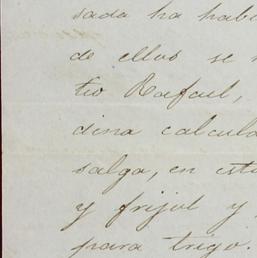 sada ha habi
de ellos se
tio Rafael,
dina calcula
salga, en est
y frijol y
para trigo.